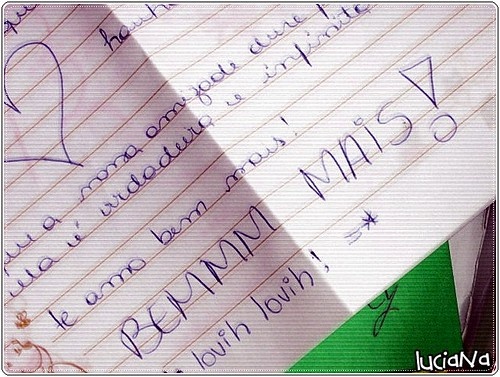 que a nossa amizade dure p
ela é verdadeira e infinita
te amo bem mais!
BEMMM MAIS!
lovih lovih! =*
luciaNa